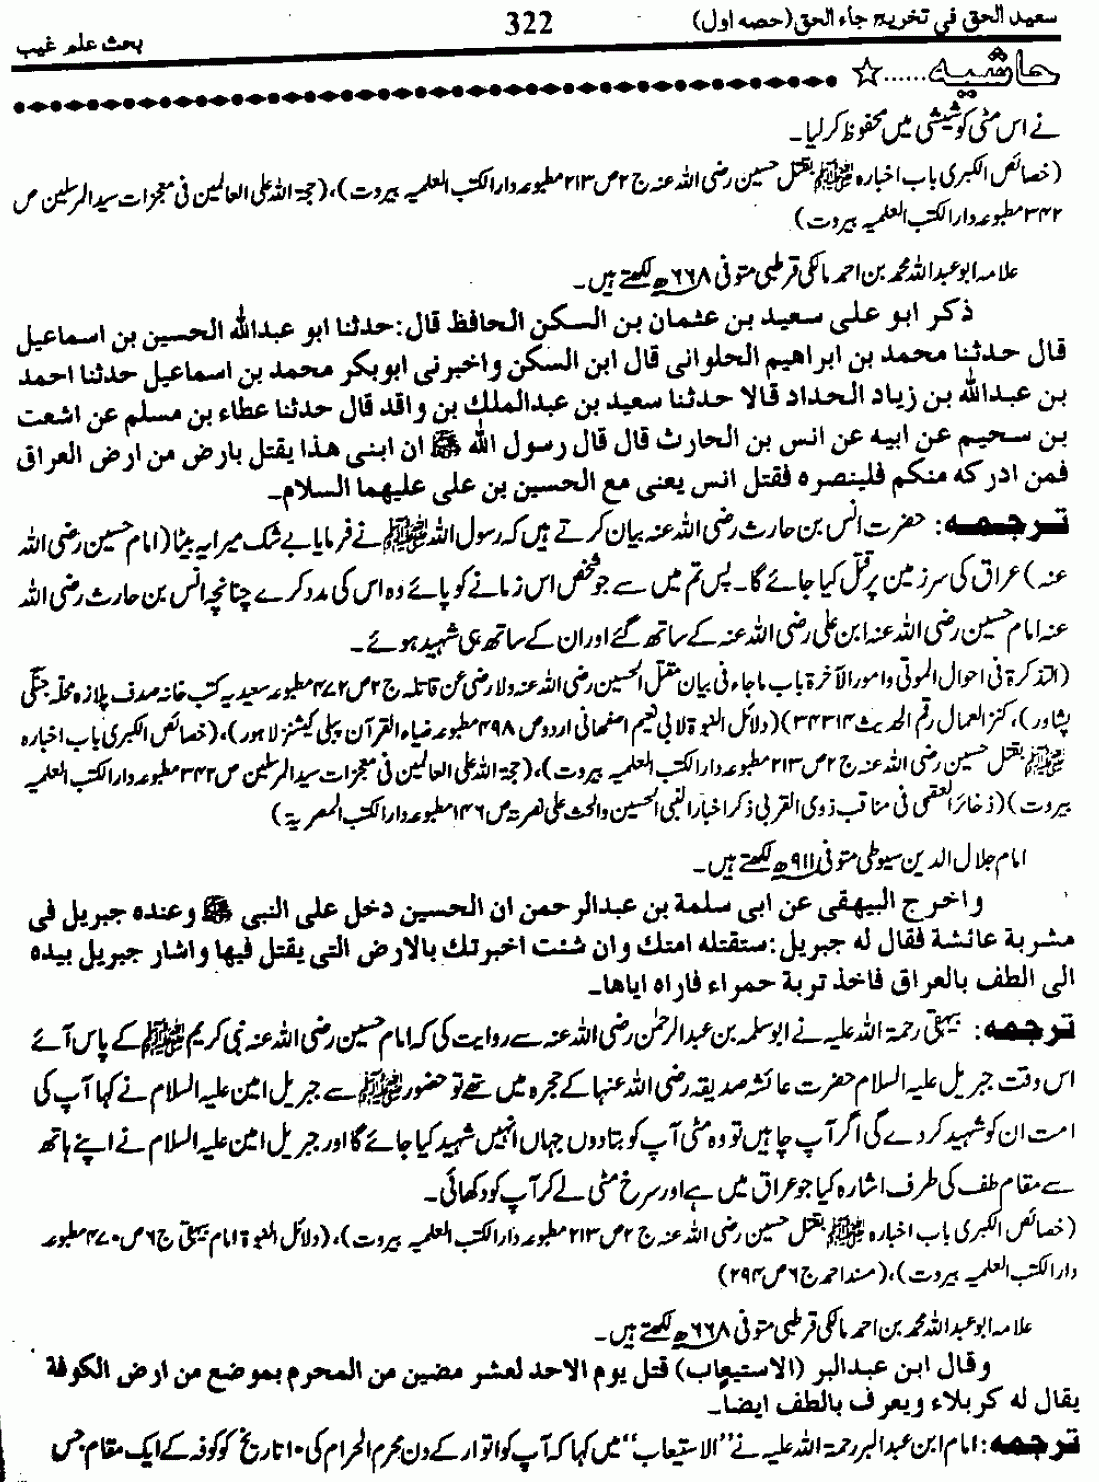 سعید الحق فی تخریج جاء الحق (حصہ اول)
322
بحث علم غیب
حاشیہ......☆
نے اس مٹی کو شیشی میں محفوظ کر لیا۔
(خصائص الکبریٰ باب اخبارہ ﷺ بقتل حسین رضی اللہ عنہ ج ۲ ص ۲۱۳ مطبوعہ دار الکتب العلمیہ بیروت)، (حجۃ اللہ علی العالمین فی معجزات سید المرسلین ص
۳۴۲ مطبوعہ دار الکتب العلمیہ بیروت)
علامہ ابو عبد اللہ محمد بن احمد مالکی قرطبی متوفی ۶۶۸ھ لکھتے ہیں۔
ذکر ابو علی سعید بن عثمان بن السکن الحافظ قال: حدثنا ابو عبداللہ الحسین بن اسماعیل
قال حدثنا محمد بن ابراھیم الحلوانی قال ابن السکن واخبرنی ابوبکر محمد بن اسماعیل حدثنا احمد
بن عبداللہ بن زیاد الحداد قالا حدثنا سعید بن عبدالملك بن واقد قال حدثنا عطاء بن مسلم عن اشعت
بن سحیم عن ابیہ عن انس بن الحارث قال قال رسول اللہ ﷺ ان ابنی ھذا یقتل بارض من ارض العراق
فمن ادرکہ منکم فلینصرہ فقتل انس یعنی مع الحسین بن علی علیھما السلام۔
ترجمہ: حضرت انس بن حارث رضی اللہ عنہ بیان کرتے ہیں کہ رسول اللہ ﷺ نے فرمایا بے شک میرا یہ بیٹا (امام حسین رضی اللہ
عنہ) عراق کی سرزمین پر قتل کیا جائے گا۔ پس تم میں سے جو شخص اس زمانے کو پائے وہ اس کی مدد کرے چنانچہ انس بن حارث رضی اللہ
عنہ امام حسین رضی اللہ عنہ ابن علی رضی اللہ عنہ کے ساتھ گئے اور ان کے ساتھ ہی شہید ہوئے۔
(التذکرۃ فی احوال الموتی وامور الآخرۃ باب ما جاء فی بیان مقتل الحسین رضی اللہ عنہ ولا رضی عن قاتلہ ج ۲ ص ۴۷۲ مطبوعہ سعیدیہ کتب خانہ صدف پلازہ محلہ جنگی
پشاور)، کنز العمال رقم الحدیث ۳۴۳۱۴) (دلائل النبوۃ لابی نعیم اصفہانی اردو ص ۴۹۸ مطبوعہ ضیاء القرآن پبلی کیشنز لاہور)، (خصائص الکبریٰ باب اخبارہ
ﷺ بقتل حسین رضی اللہ عنہ ج ۲ ص ۲۱۳ مطبوعہ دار الکتب العلمیہ بیروت)، (حجۃ اللہ علی العالمین فی معجزات سید المرسلین ص ۳۴۲ مطبوعہ دار الکتب العلمیہ
بیروت) (ذخائر العقبی فی مناقب ذوی القربی ذکر اخبار النبی الحسین والحث علی نصرتہ ص ۱۴۶ مطبوعہ دار الکتب المصریۃ)
امام جلال الدین سیوطی متوفی ۹۱۱ھ لکھتے ہیں۔
واخرج البیھقی عن ابی سلمۃ بن عبدالرحمن ان الحسین دخل علی النبی ﷺ وعندہ جبریل فی
مشربۃ عائشۃ فقال لہ جبریل: ستقتلہ امتك وان شئت اخبرتك بالارض التی یقتل فیھا واشار جبریل بیدہ
الی الطف بالعراق فاخذ تربۃ حمراء فاراہ ایاھا۔
ترجمہ: بیہقی رحمۃ اللہ علیہ نے ابوسلمہ بن عبدالرحمٰن رضی اللہ عنہ سے روایت کی کہ امام حسین رضی اللہ عنہ نبی کریم ﷺ کے پاس آئے
اس وقت جبریل علیہ السلام حضرت عائشہ صدیقہ رضی اللہ عنہا کے حجرہ میں تھے تو حضور ﷺ سے جبریل امین علیہ السلام نے کہا آپ کی
امت ان کو شہید کر دے گی اگر آپ چاہیں تو وہ مٹی آپ کو بتا دوں جہاں انہیں شہید کیا جائے گا اور جبریل امین علیہ السلام نے اپنے ہاتھ
سے مقام طف کی طرف اشارہ کیا جو عراق میں ہے اور سرخ مٹی لے کر آپ کو دکھائی۔
(خصائص الکبریٰ باب اخبارہ ﷺ بقتل حسین رضی اللہ عنہ ج ۲ ص ۲۱۳ مطبوعہ دار الکتب العلمیہ بیروت)، (دلائل النبوۃ امام بیہقی ج ۶ ص ۴۷۰ مطبوعہ
دار الکتب العلمیہ بیروت)، (مسند احمد ج ۶ ص ۲۹۴)
علامہ ابو عبد اللہ محمد بن احمد مالکی قرطبی متوفی ۶۶۸ھ لکھتے ہیں۔
وقال ابن عبدالبر (الاستیعاب) قتل یوم الاحد لعشر مضین من المحرم بموضع من ارض الکوفۃ
یقال لہ کربلاء ویعرف بالطف ایضا۔
ترجمہ: امام ابن عبدالبر رحمۃ اللہ علیہ نے "الاستیعاب" میں کہا کہ آپ کو اتوار کے دن محرم الحرام کی ۱۰ تاریخ کو کوفہ کے ایک مقام جس